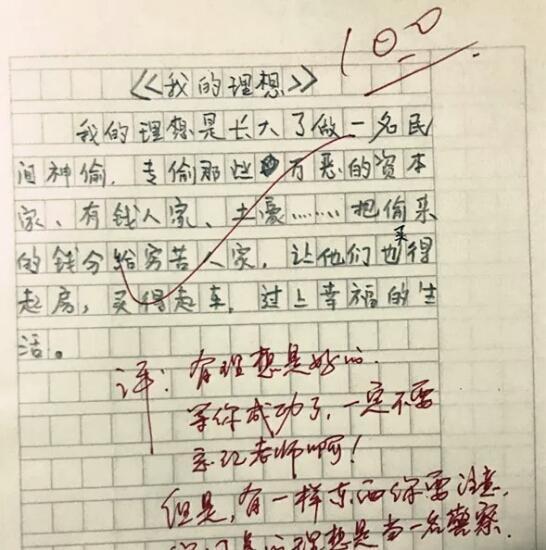 100
《我的理想》
我的理想是长大了做一名民
间神偷，专偷那些万恶的资本
家、有钱人家、土豪……把偷来
的钱分给穷苦人家，让他们也买得
起房，买得起车，过上幸福的生
活。
评：有理想是好的．
等你成功了，一定不要
忘记老师啊！
但是，有一样东西你要注意，
的理想是当一名警察．